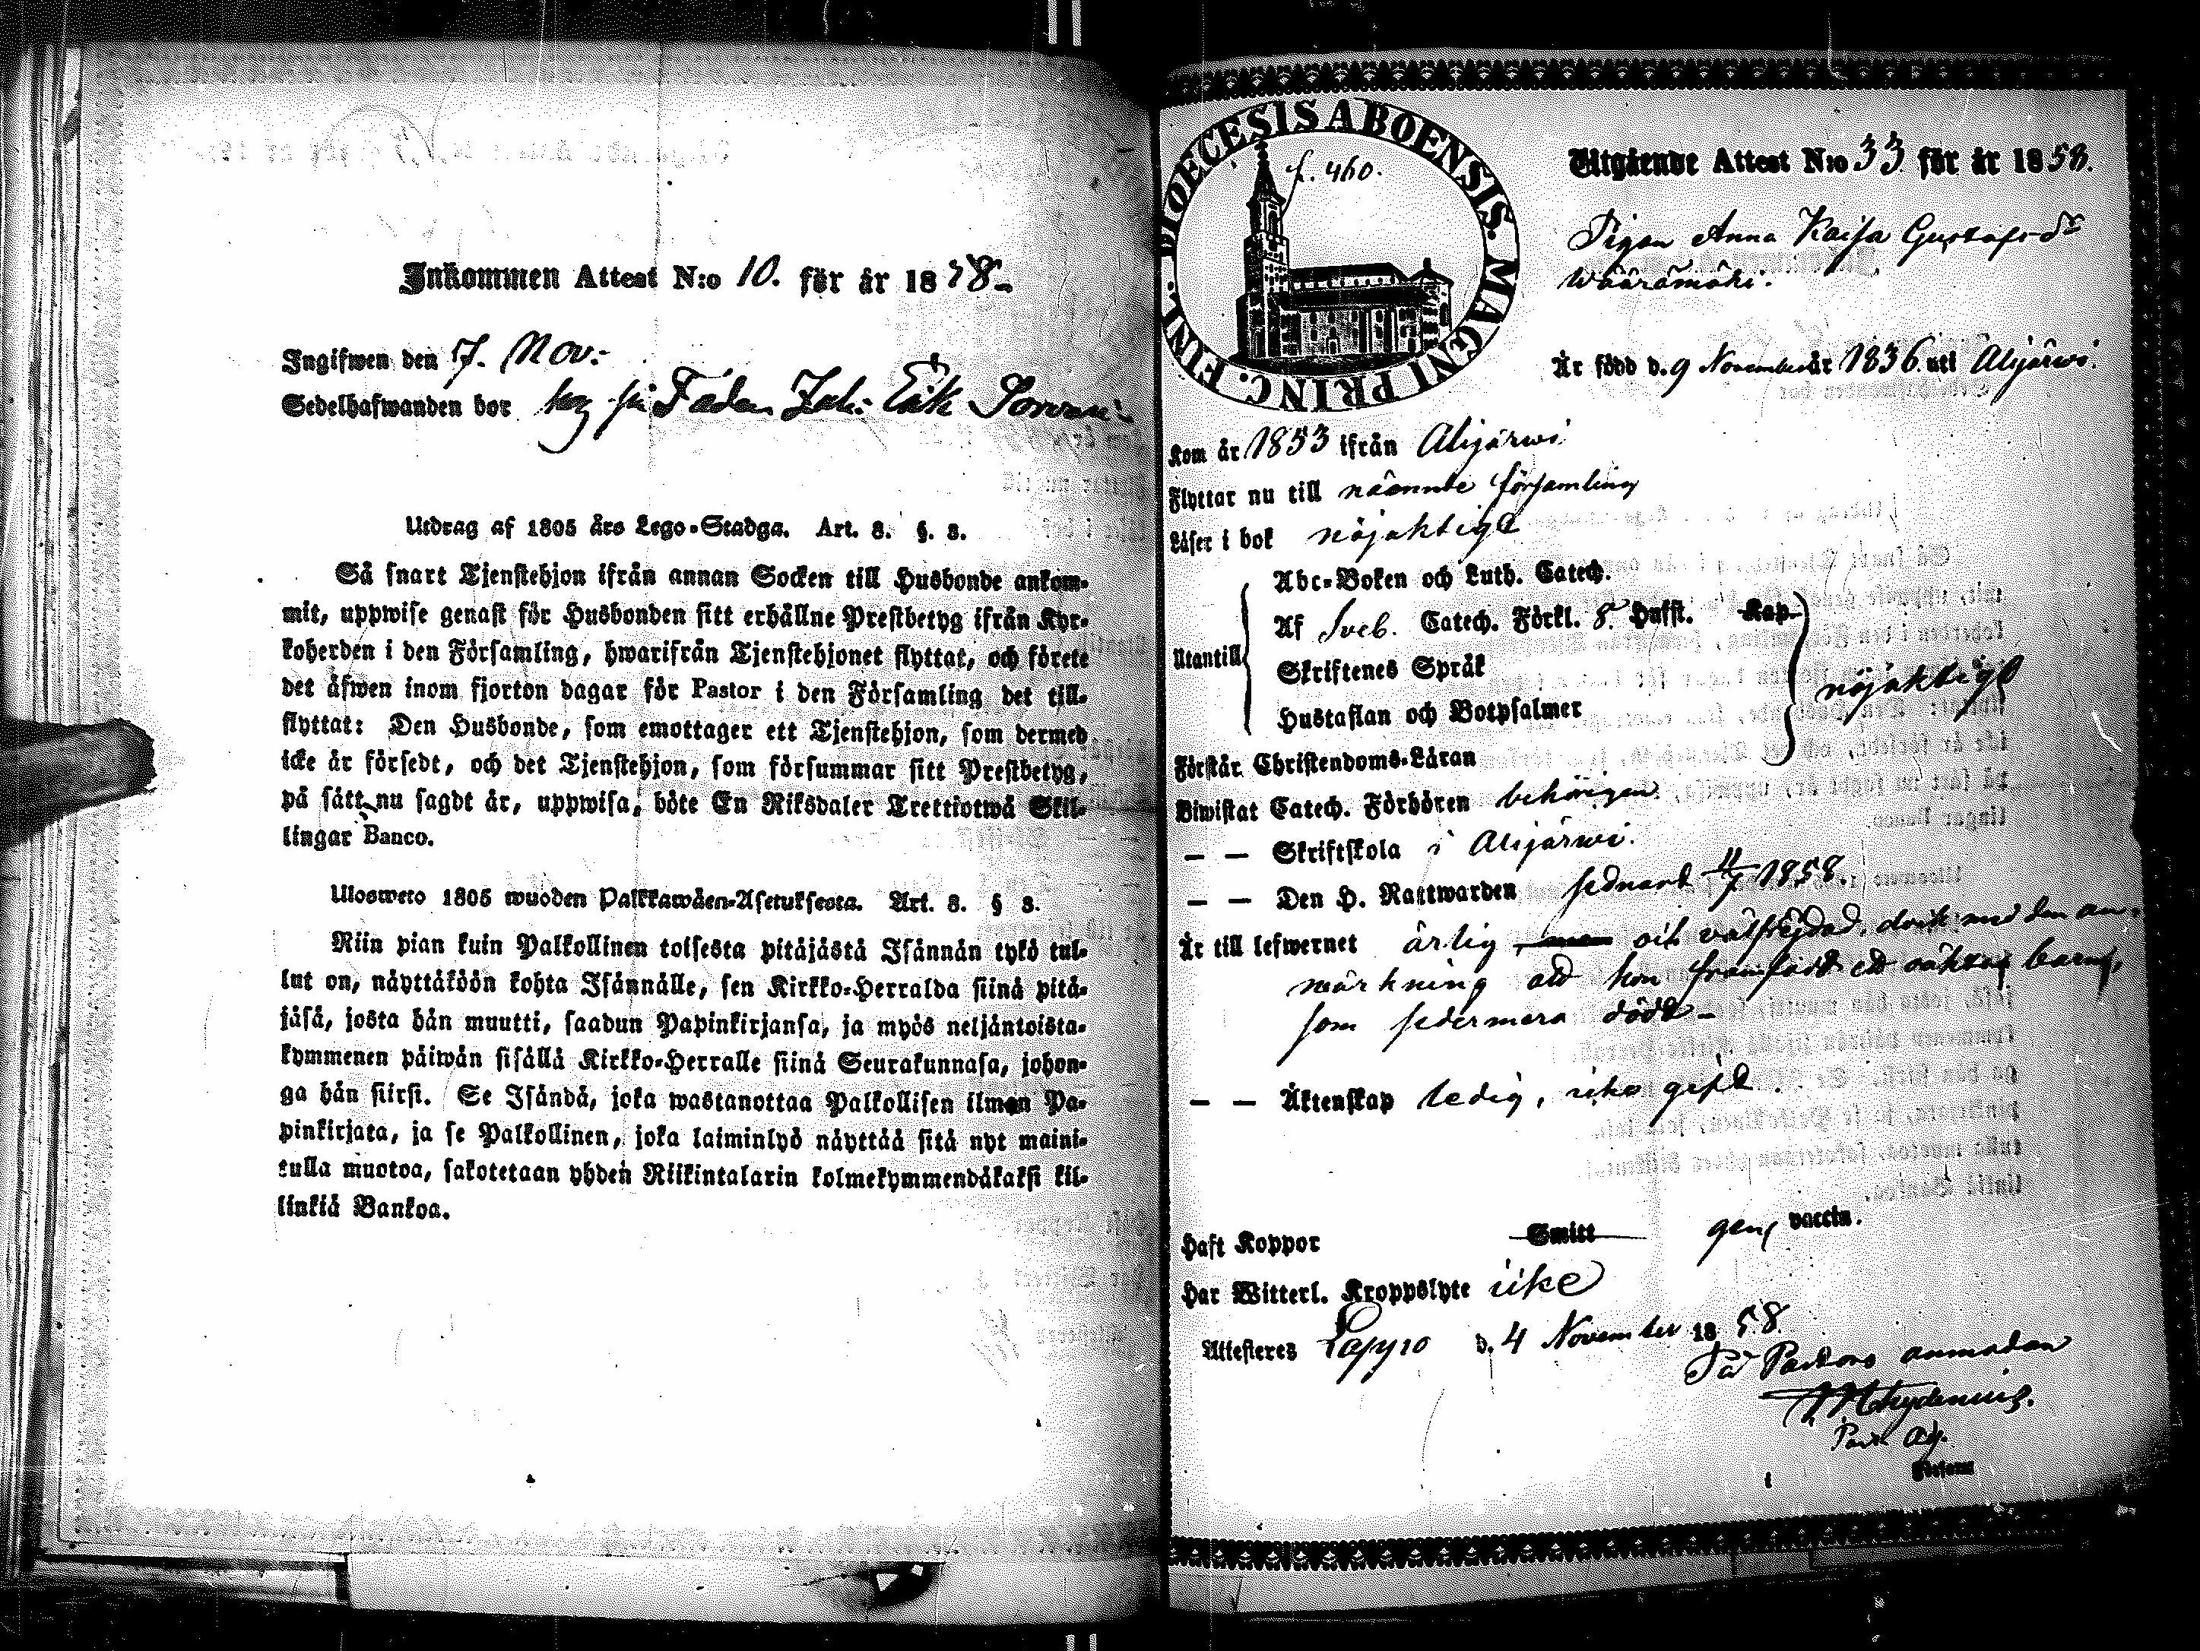 Inkommen Attest N:o 10. för år 1858.
Ingifwen den 7. Nov:
Sedelhafwanden bor hos sin Fader Joh: Erik
Utdrag af 1805 års Lego-Stadga. Art. 8. §. 3.
Så snart Tjenstehjon ifrån annan Socken till Husbonde ankom-
mit, uppwise genast för Husbonden sitt erhållne Prestbetyg ifrån Kyr-
koherden i den Församling, hwarifrån Tjenstehjonet flyttat, och förete
det äfwen inom fjorton dagar för Pastor i den Församling det till-
flyttat: Den Husbonde, som emottager ett Tjenstehjon, som dermed
icke är försedt, och det Tjenstehjon, som försummar sitt Prestbetyg,
på sätt nu sagdt är, uppwisa, böte En Riksdaler Trettiotwå Skil-
lingar Banco.
Ulosweto 1805 wuoden Palkkawäen-Asetuksesta. Art. 8. § 3.
Niin pian kuin Palkollinen toisesta pitäjästä Isännän tykö tul-
lut on, näyttäköön kohta Isännälle, sen Kirkko-Herralda siinä pitä-
jäsä, josta hän muutti, saadun Papinkirjansa, ja myös neljäntoista-
kymmenen päiwän sisällä Kirkko-Herralle siinä Seurakunnasa, johon-
ga hän siirsi. Se Isändä, joka wastanottaa Palkollisen ilman Pa-
pinkirjata, ja se Palkollinen, joka laiminlyö näyttää sitä nyt maini-
tulla muotoa, sakotetaan yhden Riikintalarin kolmekymmendäkaksi kil-
linkiä Bankoa.
DIOECESIS ABOENSIS. MAGNI PRINC. FINL.
f. 460.
Utgående Attest N:o 33 för år 1858.
Pigan Anna Kaisa Gustafsdr
Wäärämäki.
Är född d. 9 November år 1836 uti Alajärwi.
Kom år 1853 ifrån Alajärwi
Flyttar nu till nämnde församling
Läser i bok nöjaktigt
Utantill
Abc-Boken och Luth. Catech.
Af Sveb. Catech. Förkl. 8. Hufst. Kap.
Skriftenes Språk
Hustaflan och Botpsalmer
nöjaktigt
Förstår Christendoms-Läran
Biwistat Catech. Förhören behörigen
— — Skriftskola i Alajärwi.
— — Den H. Nattwarden sednast 11/7 1858.
Är till lefwernet ärlig och välfrejdad, dock med den an-
märkning att hon framfödt ett oäkta barn,
som sedermera dödt —
— — Äktenskap ledig, icke gift.
Haft Koppor Smitt gen vaccin.
Har Witterl. Kroppslyte icke
Attesteres Lappo d. 4 November 1858.
På Pastors anmodan
Past. Adj.
Församl